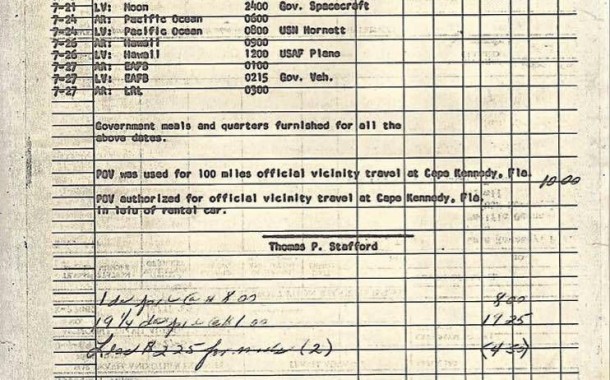 7-21 LV: Moon 2400 Gov. Spacecraft
7-24 AR: Pacific Ocean 0600
7-24 LV: Pacific Ocean 0800 USN Hornett
7-26 AR: Hawaii 0900
7-26 LV: Hawaii 1200 USAF Plane
7-27 AR: EAFB 0100
7-27 LV: EAFB 0215 Gov. Veh.
7-27 AR: 0300
Government meals and quarters furnished for all the
above dates.
POV was used for 100 miles official vicinity travel at Cape Kennedy, Fla. 10.00
POV authorized for official vicinity travel at Cape Kennedy, Fla.
in leiu of rental car.
Thomas P. Stafford
1 8 00 8 00
19 1/4 1 00 19 25
2.25 for meals (2) (4 50)